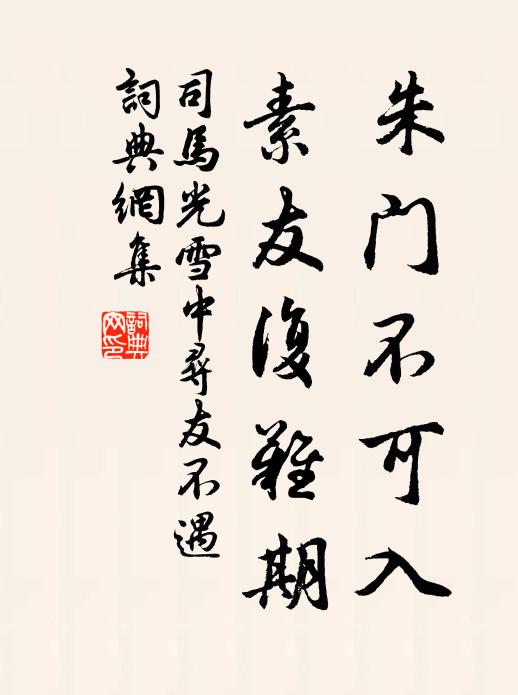 朱门不可入
素友復難期
司馬光雪中尋友不遇
詞典網集
詞典
网印